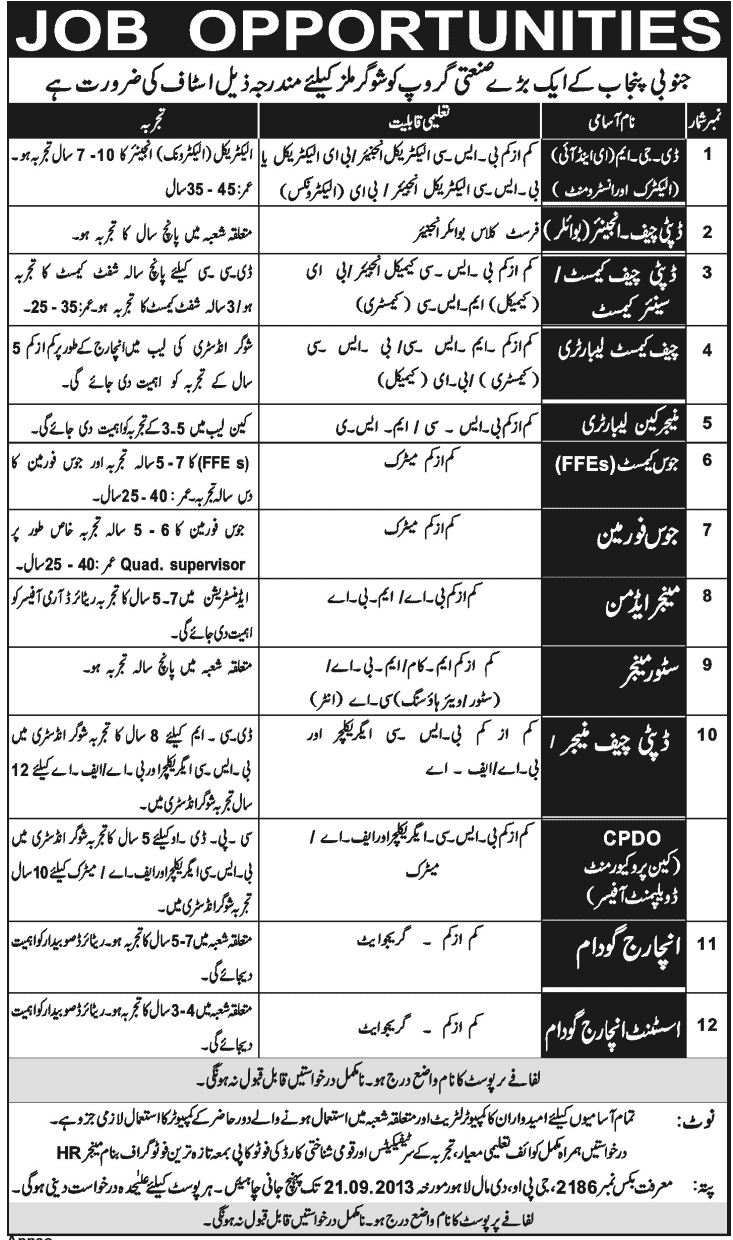 JOB OPPORTUNITIES
جنوبی پنجاب کے ایک بڑے صنعتی گروپ کو شوگر ملز کیلئے مندرجہ ذیل اسٹاف کی ضرورت ہے
نمبر شمار نام آسامی تعلیمی قابلیت تجربہ
1 ڈی۔جی۔ایم (ای اینڈ آئی) کم از کم بی۔ایس۔سی الیکٹریکل انجینئر/بی ای الیکٹریکل یا الیکٹریکل (الیکٹرونک) انجینئر کا 10 - 7 سال تجربہ ہو۔
(الیکٹرک اور انسٹرومنٹ) بی۔ایس۔سی الیکٹریکل انجینئر/ بی ای (الیکٹرونکس) عمر: 45 - 35 سال
2 ڈپٹی چیف۔انجینئر (بوائلر) فرسٹ کلاس بوائلر انجینئر متعلقہ شعبہ میں پانچ سال کا تجربہ ہو۔
3 ڈپٹی چیف کیمسٹ/ کم از کم بی۔ایس۔سی کیمیکل انجینئر/بی ای ڈی۔سی۔سی کیلئے پانچ سالہ شفٹ کیمسٹ کا تجربہ
سینئر کیمسٹ (کیمیکل) ایم۔ایس۔سی (کیمسٹری) ہو/3 سالہ شفٹ کیمسٹ کا تجربہ ہو۔عمر: 35 - 25۔
4 چیف کیمسٹ لیبارٹری کم از کم۔ایم۔ایس۔سی/بی۔ایس۔سی شوگر انڈسٹری کی لیب میں انچارج کے طور پر کم از کم 5
(کیمسٹری)/بی۔ای (کیمیکل) سال کے تجربہ کو اہمیت دی جائے گی۔
5 منیجر کین لیبارٹری کم از کم بی۔ایس۔سی / ایم۔ایس۔ی کین لیب میں 5-3 کے تجربہ کو اہمیت دی جائے گی۔
6 جوس کیمسٹ (FFEs) کم از کم میٹرک (FFE s) کا 7 - 5 سالہ تجربہ اور جوس فورمین کا
دس سالہ تجربہ۔عمر: 40 - 25 سال۔
7 جوس فورمین کم از کم میٹرک جوس فورمین کا 6 - 5 سالہ تجربہ خاص طور پر
Quad. supervisor عمر: 40 - 25 سال۔
8 مینجر ایڈمن کم از کم بی۔اے/ ایم۔بی۔اے ایڈمنسٹریشن میں 7-5 سال کا تجربہ ریٹائرڈ آرمی آفیسر کو
اہمیت دی جائے گی۔
9 سٹور مینجر کم از کم ایم۔کام/ایم۔بی۔اے/ متعلقہ شعبہ میں پانچ سالہ تجربہ ہو۔
(سٹور/ویئر ہاؤسنگ) سی۔اے (انٹر)
10 ڈپٹی چیف منیجر / کم از کم بی۔ایس سی ایگریکلچر اور ڈی۔سی۔ایم کیلئے 8 سال کا تجربہ شوگر انڈسٹری میں
بی۔اے/ایف۔اے بی۔ایس۔سی ایگریکلچر اور بی۔اے/ایف۔اے کیلئے 12
سال تجربہ شوگر انڈسٹری میں۔
CPDO کم از کم بی۔ایس۔سی۔ایگریکلچر اور ایف۔اے/ سی۔پی۔ڈی۔او کیلئے 5 سال کا تجربہ شوگر انڈسٹری میں
(کین پروکیورمنٹ میٹرک بی۔ایس۔سی ایگریکلچر اور ایف۔اے/ میٹرک کیلئے 10 سال
ڈویلپمنٹ آفیسر) تجربہ شوگر انڈسٹری میں۔
11 انچارج گودام کم از کم ۔ گریجوایٹ متعلقہ شعبہ میں 7-5 سال کا تجربہ ہو۔ریٹائرڈ صوبیدار کو اہمیت
دیجائے گی۔
12 اسسٹنٹ انچارج گودام کم از کم ۔ گریجوایٹ متعلقہ شعبہ میں 4-3 سال کا تجربہ ہو۔ریٹائرڈ صوبیدار کو اہمیت
دیجائے گی۔
لفافے پر پوسٹ کا نام واضع درج ہو۔نامکمل درخواستیں قابل قبول نہ ہونگی۔
نوٹ: تمام آسامیوں کیلئے امیدواران کا کمپیوٹر لٹریٹ اور متعلقہ شعبہ میں استعمال ہونے والے دور حاضر کے کمپیوٹر کا استعمال لازمی جزو ہے۔
درخواستیں ہمراہ مکمل کوائف تعلیمی معیار، تجربہ کے سرٹیفکیٹس اور قومی شناختی کارڈ کی فوٹو کاپی بمعہ تازہ ترین فوٹو گراف بنام منیجر HR
پتہ: معرفت بکس نمبر 2186، جی پی او، دی مال لاہور مورخہ 21.09.2013 تک پہنچ جانی چاہیئں۔ہر پوسٹ کیلئے علیحدہ درخواست دینی ہوگی۔
لفافے پر پوسٹ کا نام واضع درج ہو۔نامکمل درخواستیں قابل قبول نہ ہونگی۔